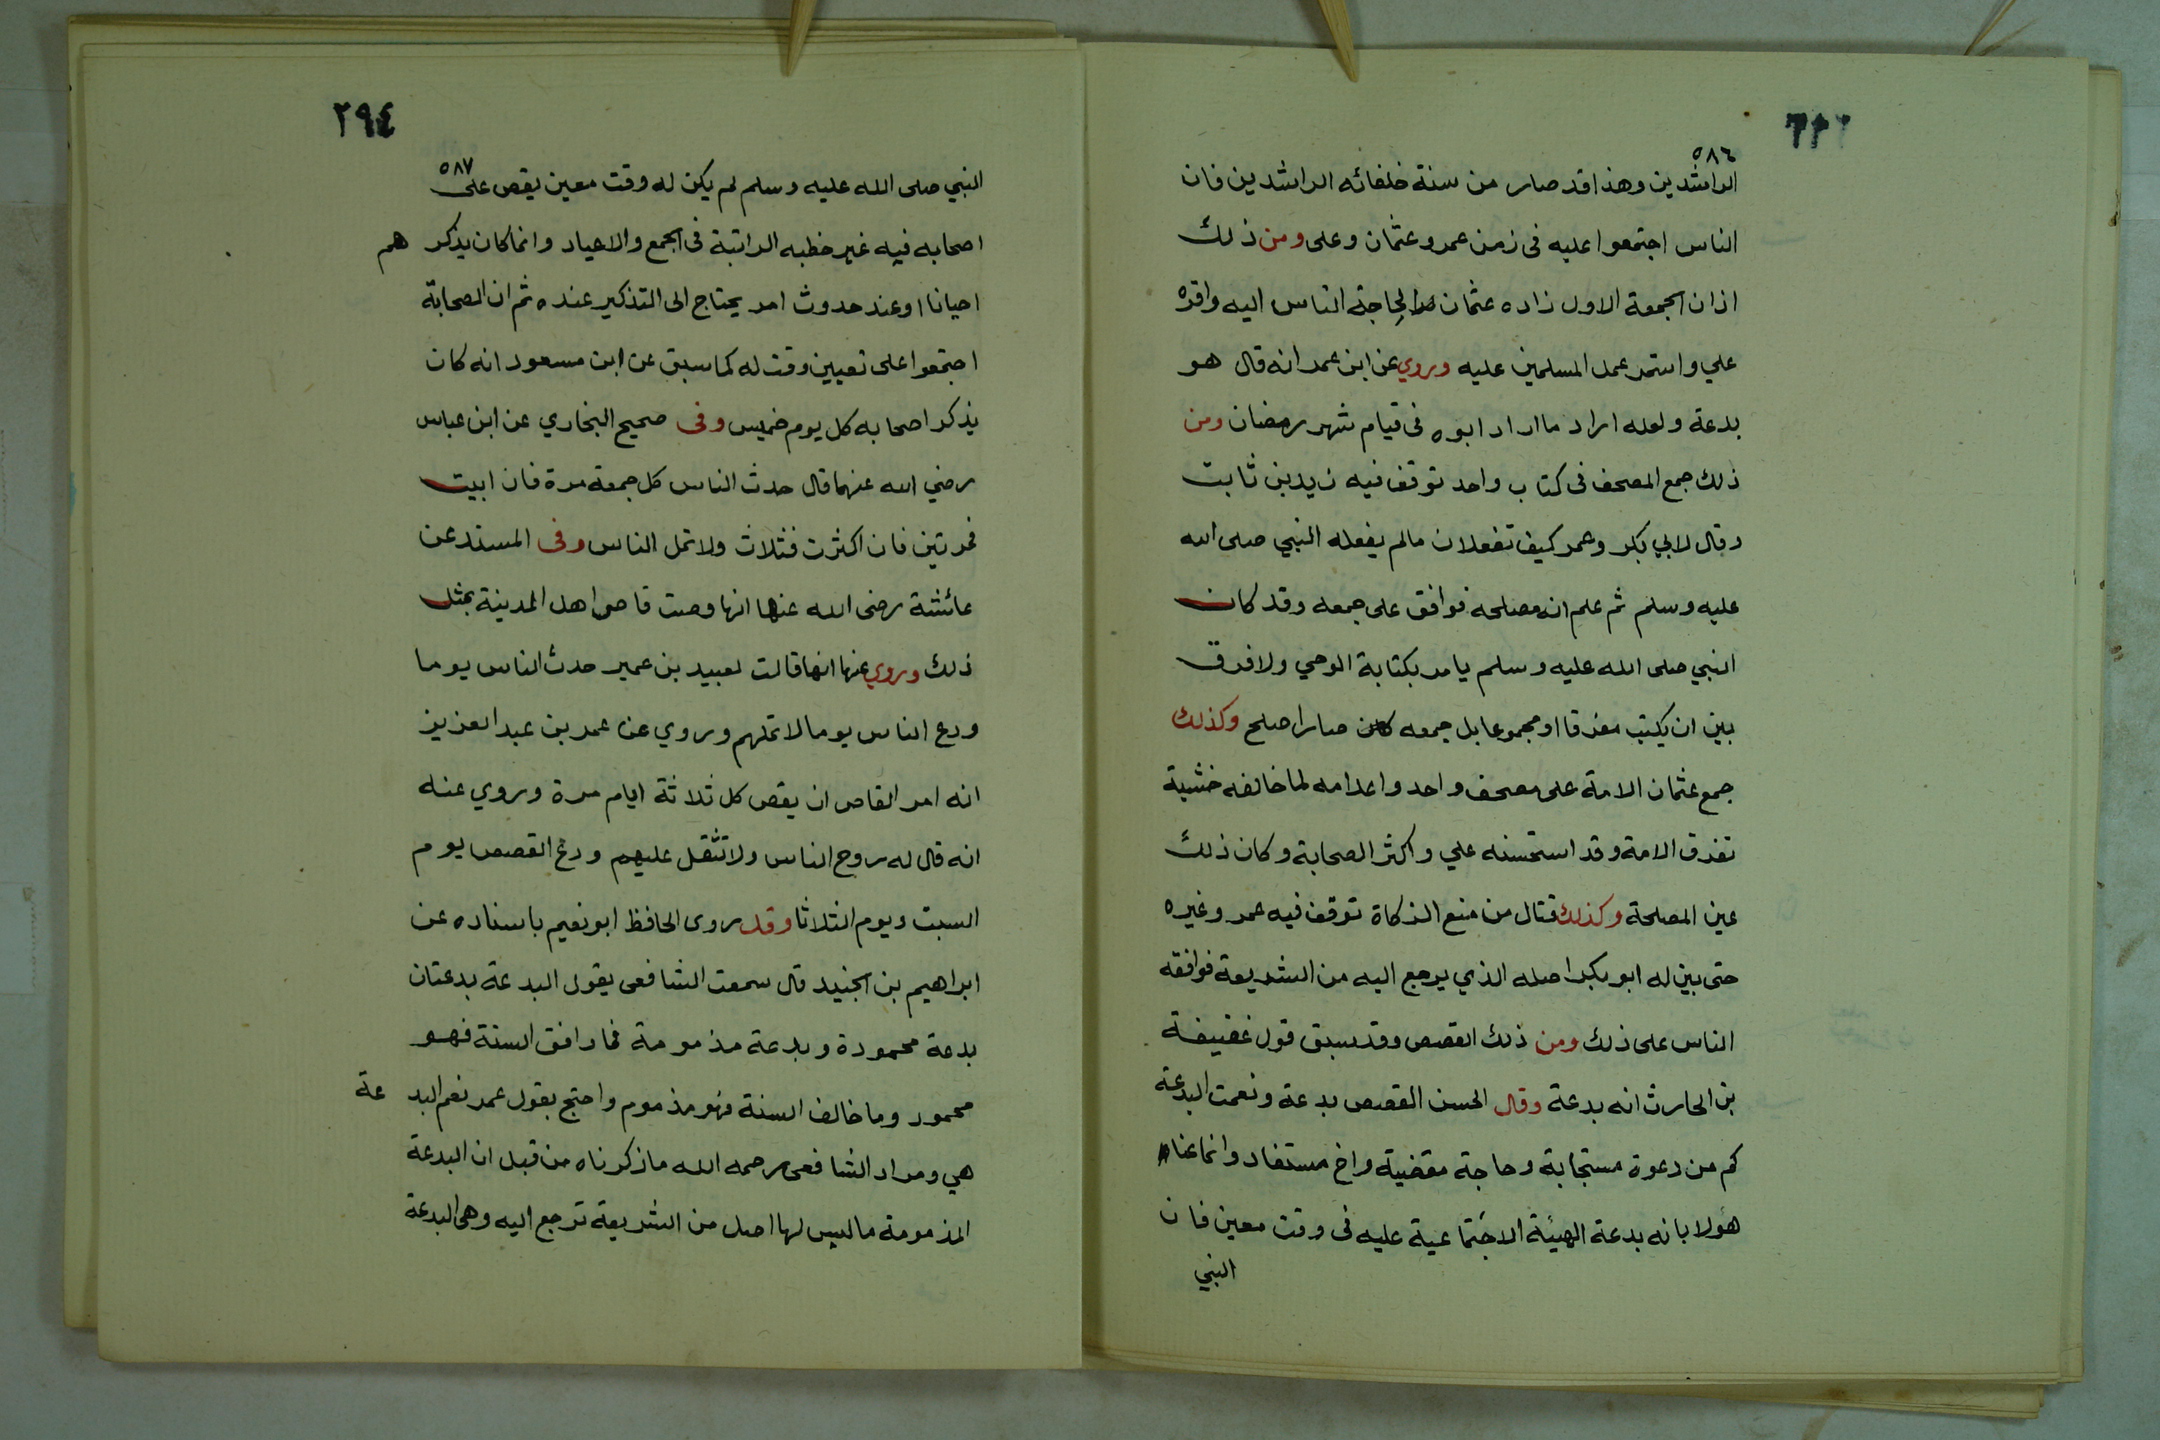 ٥٨٦
الراشدين وهذا قد صار من سنة خلفائه الراشدين فان
الناس اجتمعوا عليه فى زمن عمر وعثمان وعلى ومن ذلك
اذان الجمعة الاول زاده عثمان لحاجة الناس اليه واقره
علي واستمر عمل المسلمين عليه وروي عن ابن عمر انه قال هو
بدعة ولعله اراد ما اراد ابوه فى قيام شهر رمضان ومن
ذلك جمع المصحف فى كتاب واحد توقف فيه زيد بن ثابت
وقال لابي بكر وعمر كيف تفعلان مالم يفعله النبي صلى الله
عليه وسلم ثم علم انه مصلحة فوافق على جمعه وقد كان
النبي صلى الله عليه وسلم يامر بكتابة الوحي ولا فرق
بين ان يكتب مفرقا او مجموعا بل جمعه صار اصلح وكذلك
جمع عثمان الامة على مصحف واحد واعدامه لما خالفه خشية
تفرق الامة وقد استحسنه علي واكثر الصحابة وكان ذلك
عين المصلحة وكذلك قتال من منع الزكاة توقف فيه عمر وغيره
حتى بين له ابو بكر اصله الذي يرجع اليه من الشريعة فوافقه
الناس على ذلك ومن ذلك القصص وقد سبق قول غضيفة
بن الحارث انه بدعة وقال الحسن القصص بدعة ونعمت البدعة
كم من دعوة مستجابة وحاجة مقضية واخ مستفاد وانما عنا
هؤلا بانه بدعة الهيئة الاجتماعية عليه فى وقت معين فان
النبي
٢٩٤
٥٨٧
النبي صلى الله عليه وسلم لم يكن له وقت معين يقص على
اصحابه فيه غير خطبه الراتبة فى الجمع والاعياد وانما كان يذكر هم
احيانا او عند حدوث امر يحتاج الى التذكير عنده ثم ان الصحابة
اجتمعوا على تعيين وقت له كما سبق عن ابن مسعود انه كان
يذكر اصحابه كل يوم خميس وفى صحيح البخاري عن ابن عباس
رضي الله عنهما قال حدث الناس كل جمعة مرة فان ابيت
فمرتين فان اكثرت فثلاث ولا تمل الناس وفى المسند عن
عائشة رضى الله عنها انها وصت قاص اهل المدينة بمثل
ذلك وروي عنها انها قالت لعبيد بن عمير حدث الناس يوما
ودع الناس يوما لا تملهم وروي عن عمر بن عبد العزيز
انه امر القاص ان يقص كل ثلاثة ايام مرة وروي عنه
انه قال له روح الناس ولا تثقل عليهم ودع القصص يوم
السبت ويوم الثلاثا وقد روى الحافظ ابو نعيم باسناده عن
ابراهيم بن الجنيد قال سمعت الشافعى يقول البدعة بدعتان
بدعة محمودة وبدعة مذمومة فما وافق السنة فهو
محمود وما خالف السنة فهو مذموم واحتج بقول عمر نعم البد عة
هي ومراد الشافعى رحمه الله ما ذكرناه من قبل ان البدعة
المذمومة ما ليس لها اصل من الشريعة ترجع اليه وهى البدعة